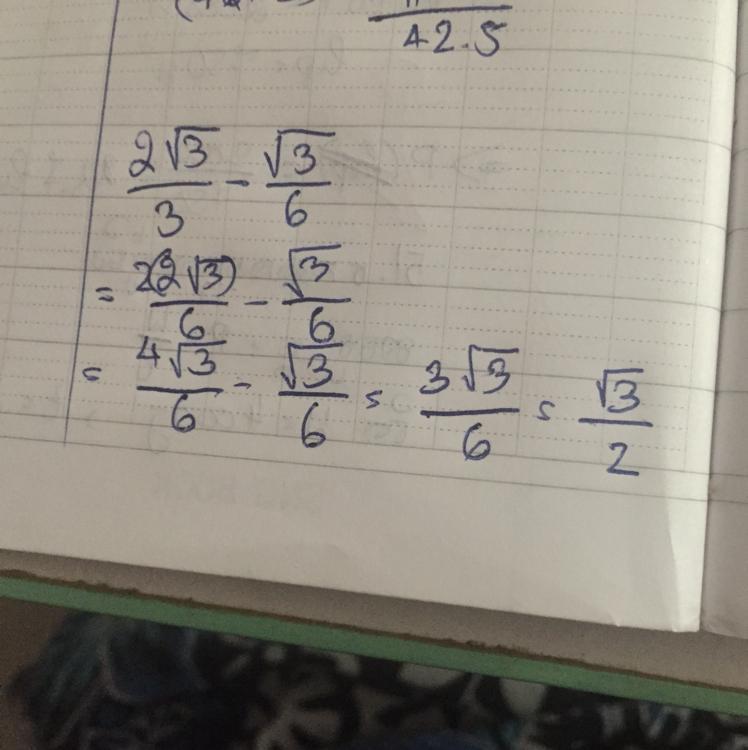 42.5
2√3/3 - √3/6
= 2(2√3)/6 - √3/6
= 4√3/6 - √3/6 = 3√3/6 = √3/2